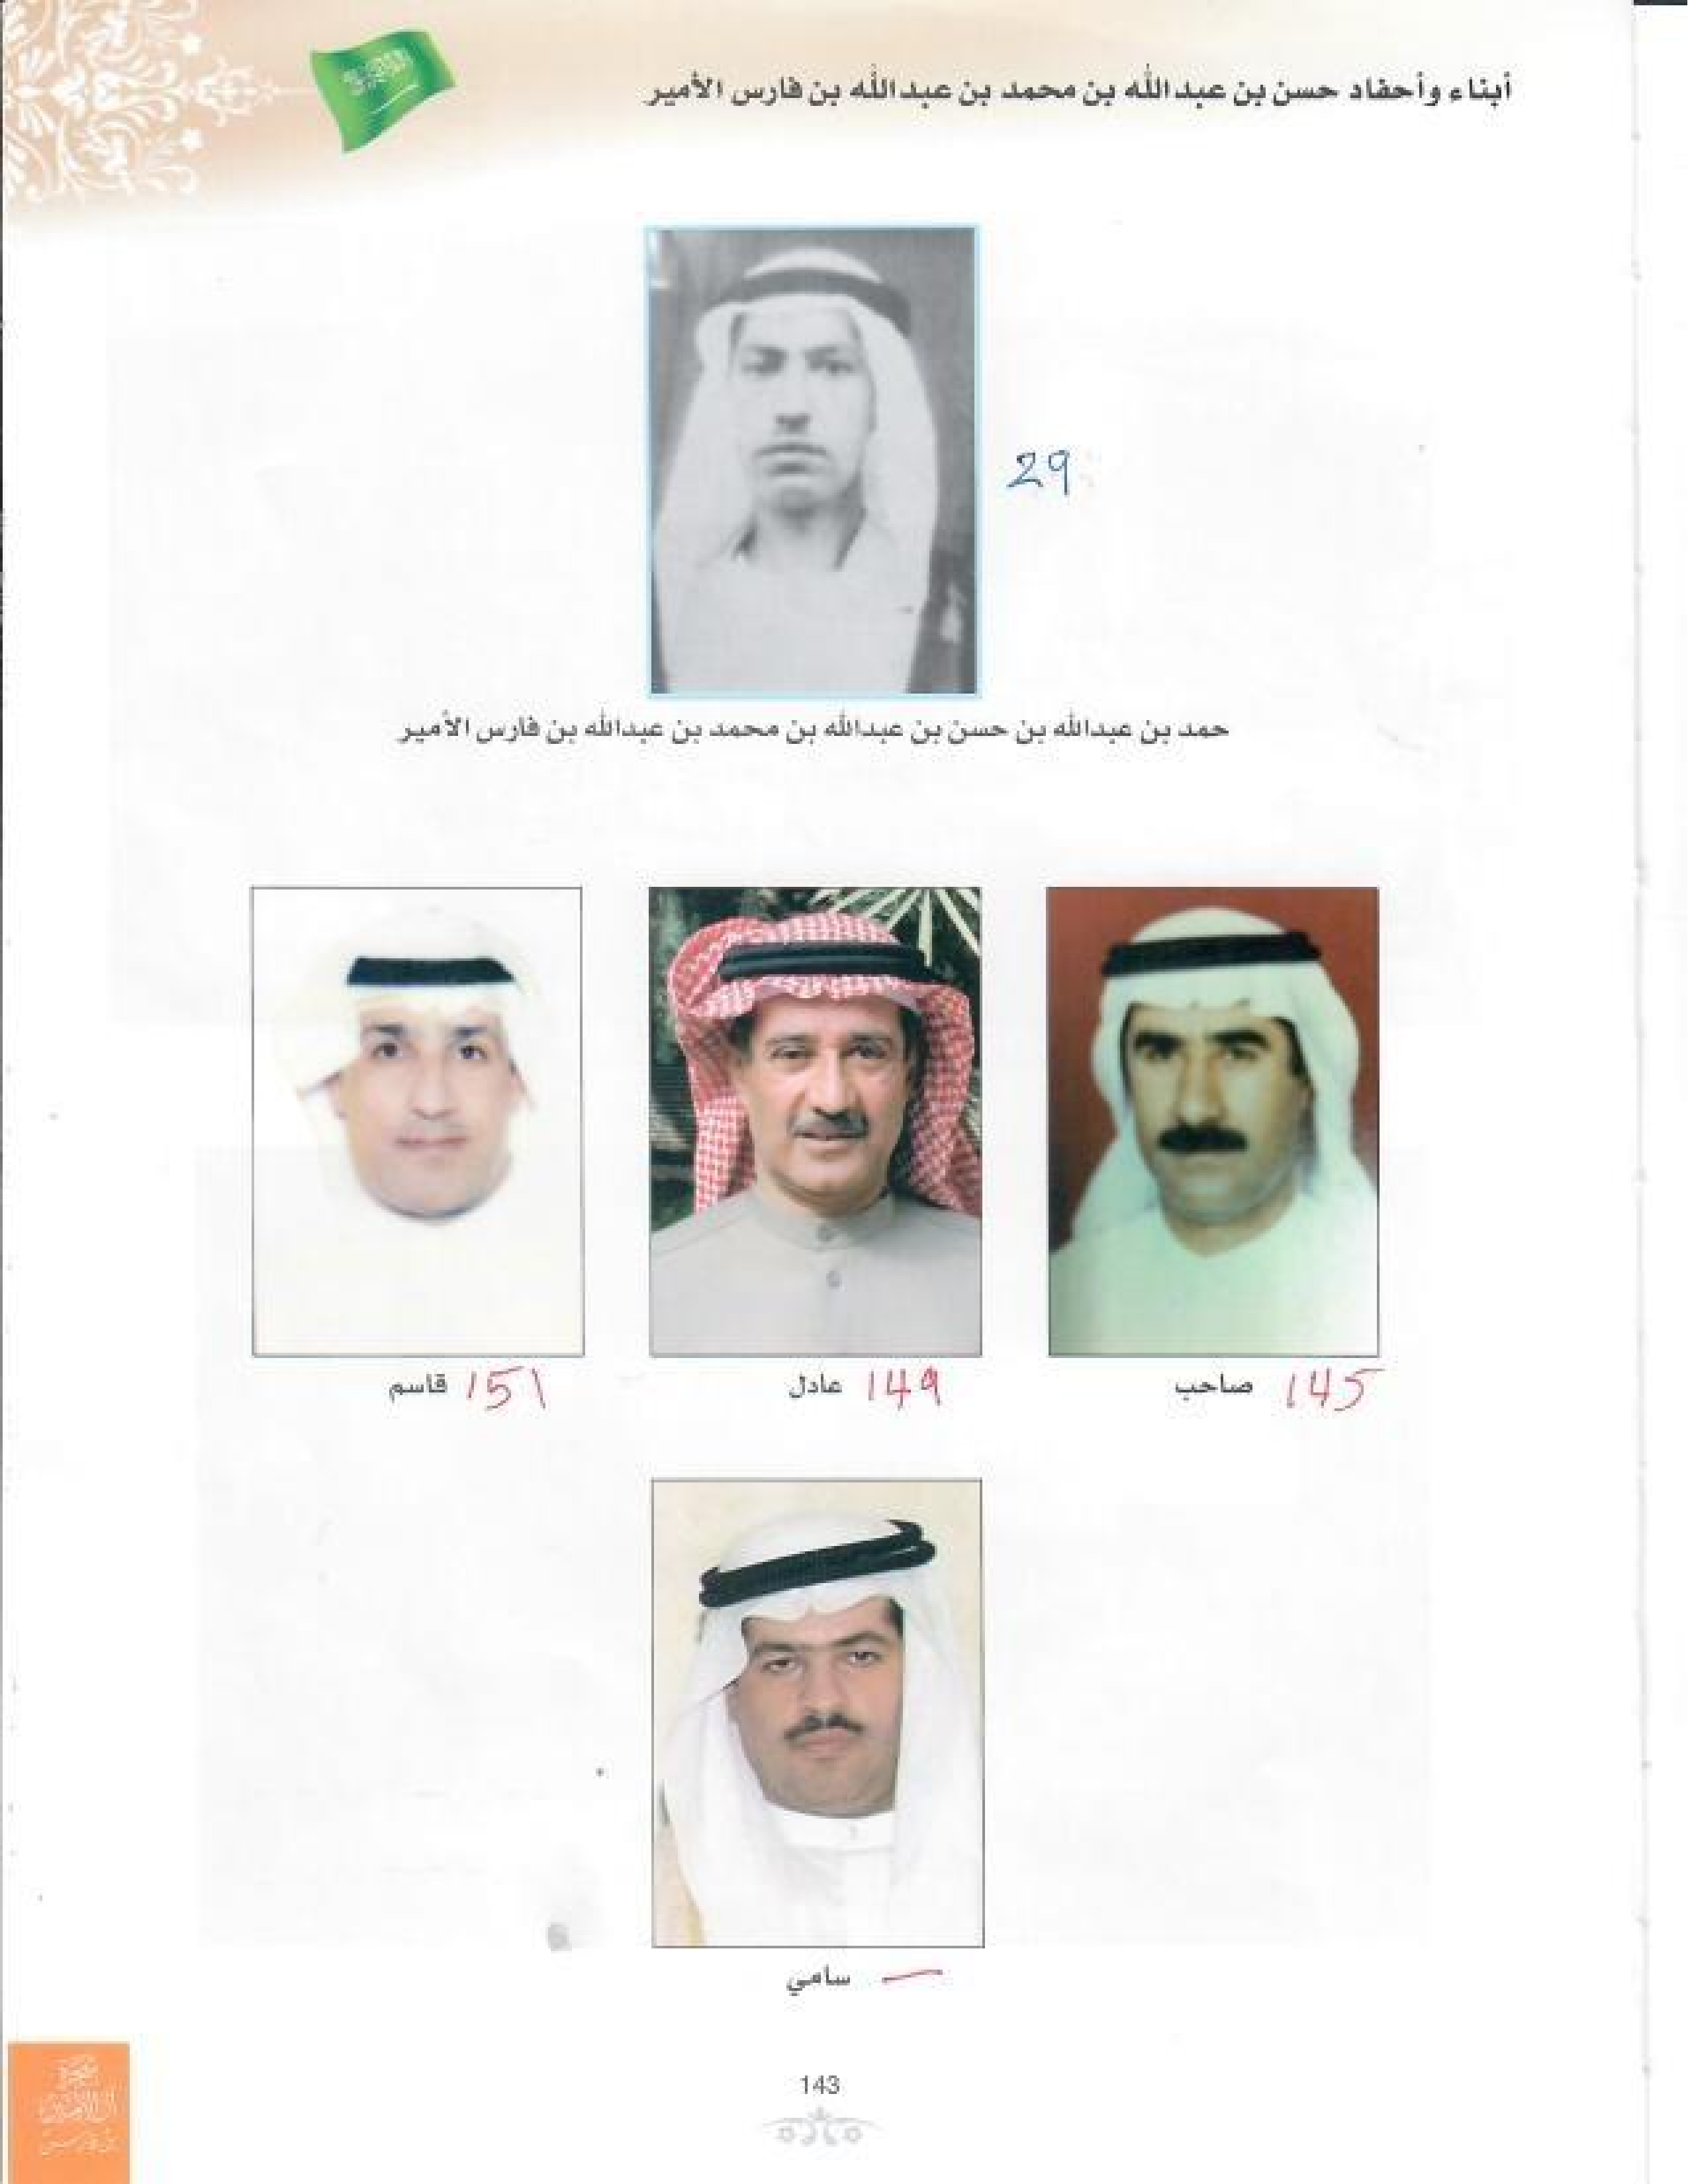 أبناء وأحفاد حسن بن عبدالله بن محمد بن عبدالله بن فارس الأمير
29
حمد بن عبدالله بن حسن بن عبدالله بن محمد بن عبدالله بن فارس الأمير
145 صاحب
149 عادل
151 قاسم
سامي
143
شجرة
آل الأمير
بن فارس